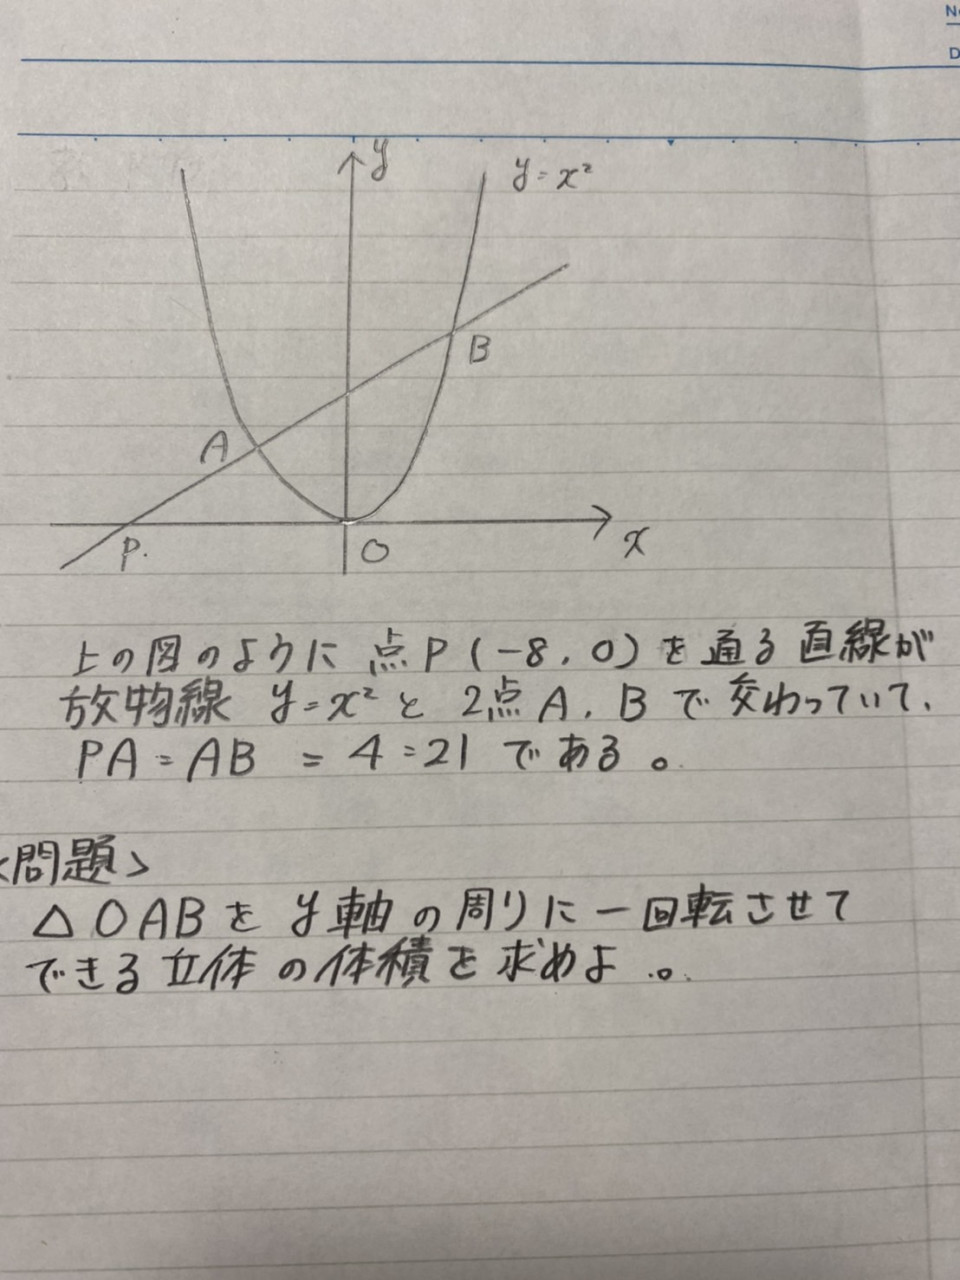 No
D
y
y=x²
B
A
P.
O
x
上の図のように点P(-8,0)を通る直線が
放物線 y=x²と2点A,Bで交わっていて、
PA:AB = 4:21である。
<問題>
△OABをy軸の周りに一回転させて
できる立体の体積を求めよ。